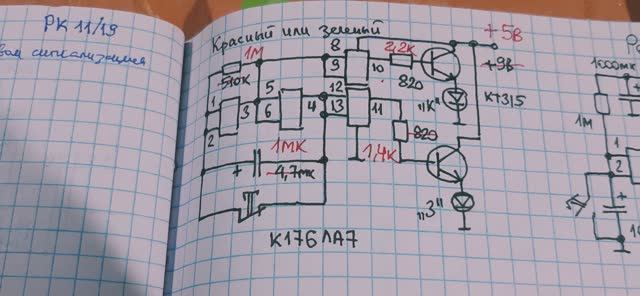 РК 11/19
сигнализация
Красный или зеленый
+5В
+9В
1М
510К
8
9
10
2,2к
820
КТ315
"К"
1
2
3
5
6
4
12
13
11
820
1,4к
1МК
+
4,7мк
"З"
К176ЛА7
1000мк
+
1М
1
2
+